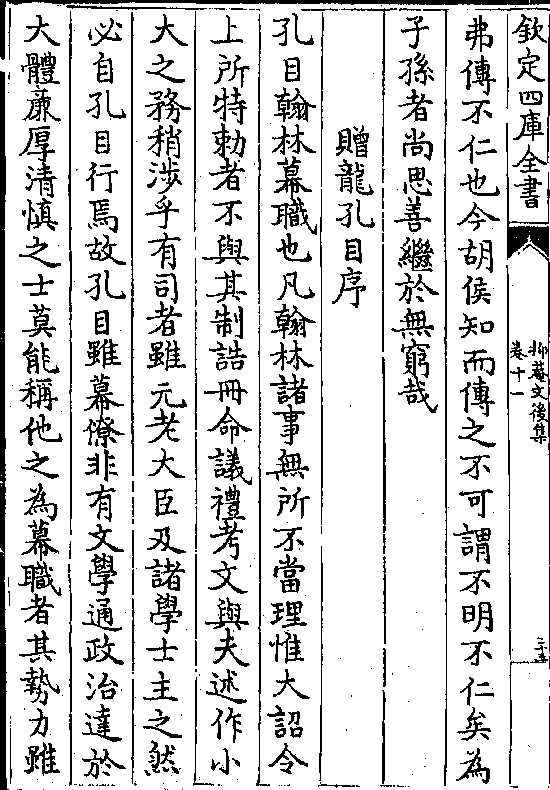 欽定四庫全書
抑菴文後集
卷十一
三十五
弗傳不仁也今胡侯知而傳之不可謂不明不仁矣為
子孫者尚思善繼於無窮哉
贈龍孔目序
孔目翰林幕職也凡翰林諸事無所不當理惟大詔令
上所特勅者不與其制誥冊命議禮考文與夫述作小
大之務稍涉乎有司者雖元老大臣及諸學士主之然
必自孔目行焉故孔目雖幕僚非有文學通政治達於
大體廉厚清慎之士莫能稱他之為幕職者其勢力雖